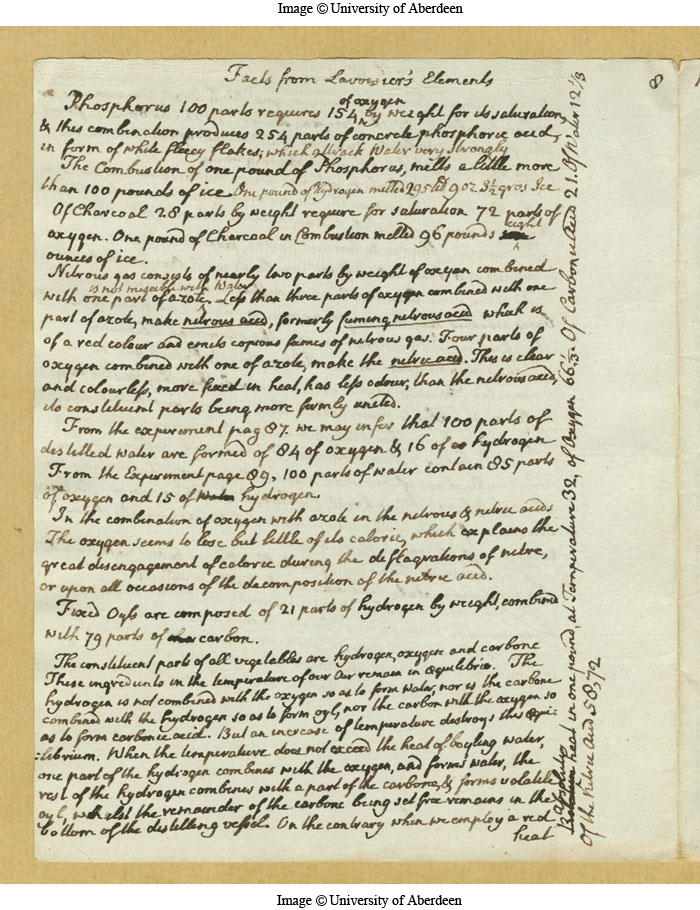 Image © University of Aberdeen
8
Facts from Lavoisier's Elements
of oxygen
Phosphorus 100 parts requires 154 by weight for its saturation
& this combination produces 254 parts of concrete phosphoric acid,
in form of white fleecy flakes; which attrack Water very strongly
The Combustion of one pound of Phosphorus, melts a little more
than 100 pounds of ice One pound of Hydrogen melted 295 lib 9 oz 3½ gros Ice
Of Charcoal 28 parts by weight require for saturation 72 parts of
oxygen. One pound of Charcoal in Combustion melted 96 pounds eight
ounces of ice.
Nitrous gas consists of nearly two parts by weight of oxygen combined
is not miscible with Water
with one part of azote, Less than three parts of oxygen combined with one
part of azote, make nitrous acid, formerly fuming nitrous acid which is
of a red colour and emits copious fumes of nitrous gas. Four parts of
oxygen combined with one of azote, make the nitric acid. This is clear
and colourless, more fixed in heat, has less odour, than the nitrous acid,
its constituent parts being more firmly united.
From the experiment pag 87. we may infer that 100 parts of
destilled water are formed of 84 of oxygen & 16 of hydrogen
From the Experiment page 89, 100 parts of water contain 85 parts
of oxygen and 15 of hydrogen.
In the combination of oxygen with azote in the nitrous & nitric acids
The oxygen seems to lose but little of its caloric, which explains the
great disengagement of caloric during the deflagrations of nitre,
or upon all occasions of the decomposition of the nitric acid.
Fixed Oyls are composed of 21 parts of hydrogen by weight, combined
with 79 parts of carbon.
The constituent parts of all vegetables are hydrogen, oxygene and carbone
These ingredients in the temperature of our Air remain in equilibrio. The
hydrogen is not combined with the oxygen so as to form water, nor is the carbone
combined with the hydrogen so as to form oyl, nor the carbon with the oxygen so
as to form carbonic acid. But an increase of temperature destroys this equi-
:librium. When the temperature does not exceed the heat of boyling water,
one part of the hydrogen combines with the oxygen, and forms water, the
rest of the hydrogen combines with a part of the carbone, & forms volatile
oyl, whilst the remainder of the carbone being set free remains in the
bottom of the distilling vessel. On the contrary when we employ a red
heat
Absolute
heat in one pound, at Temperature 32, of Oxygen 66⅓. Of Carbonic Acid 21. Of Water 12⅓
Of the Nitric Acid 58,72
Image © University of Aberdeen